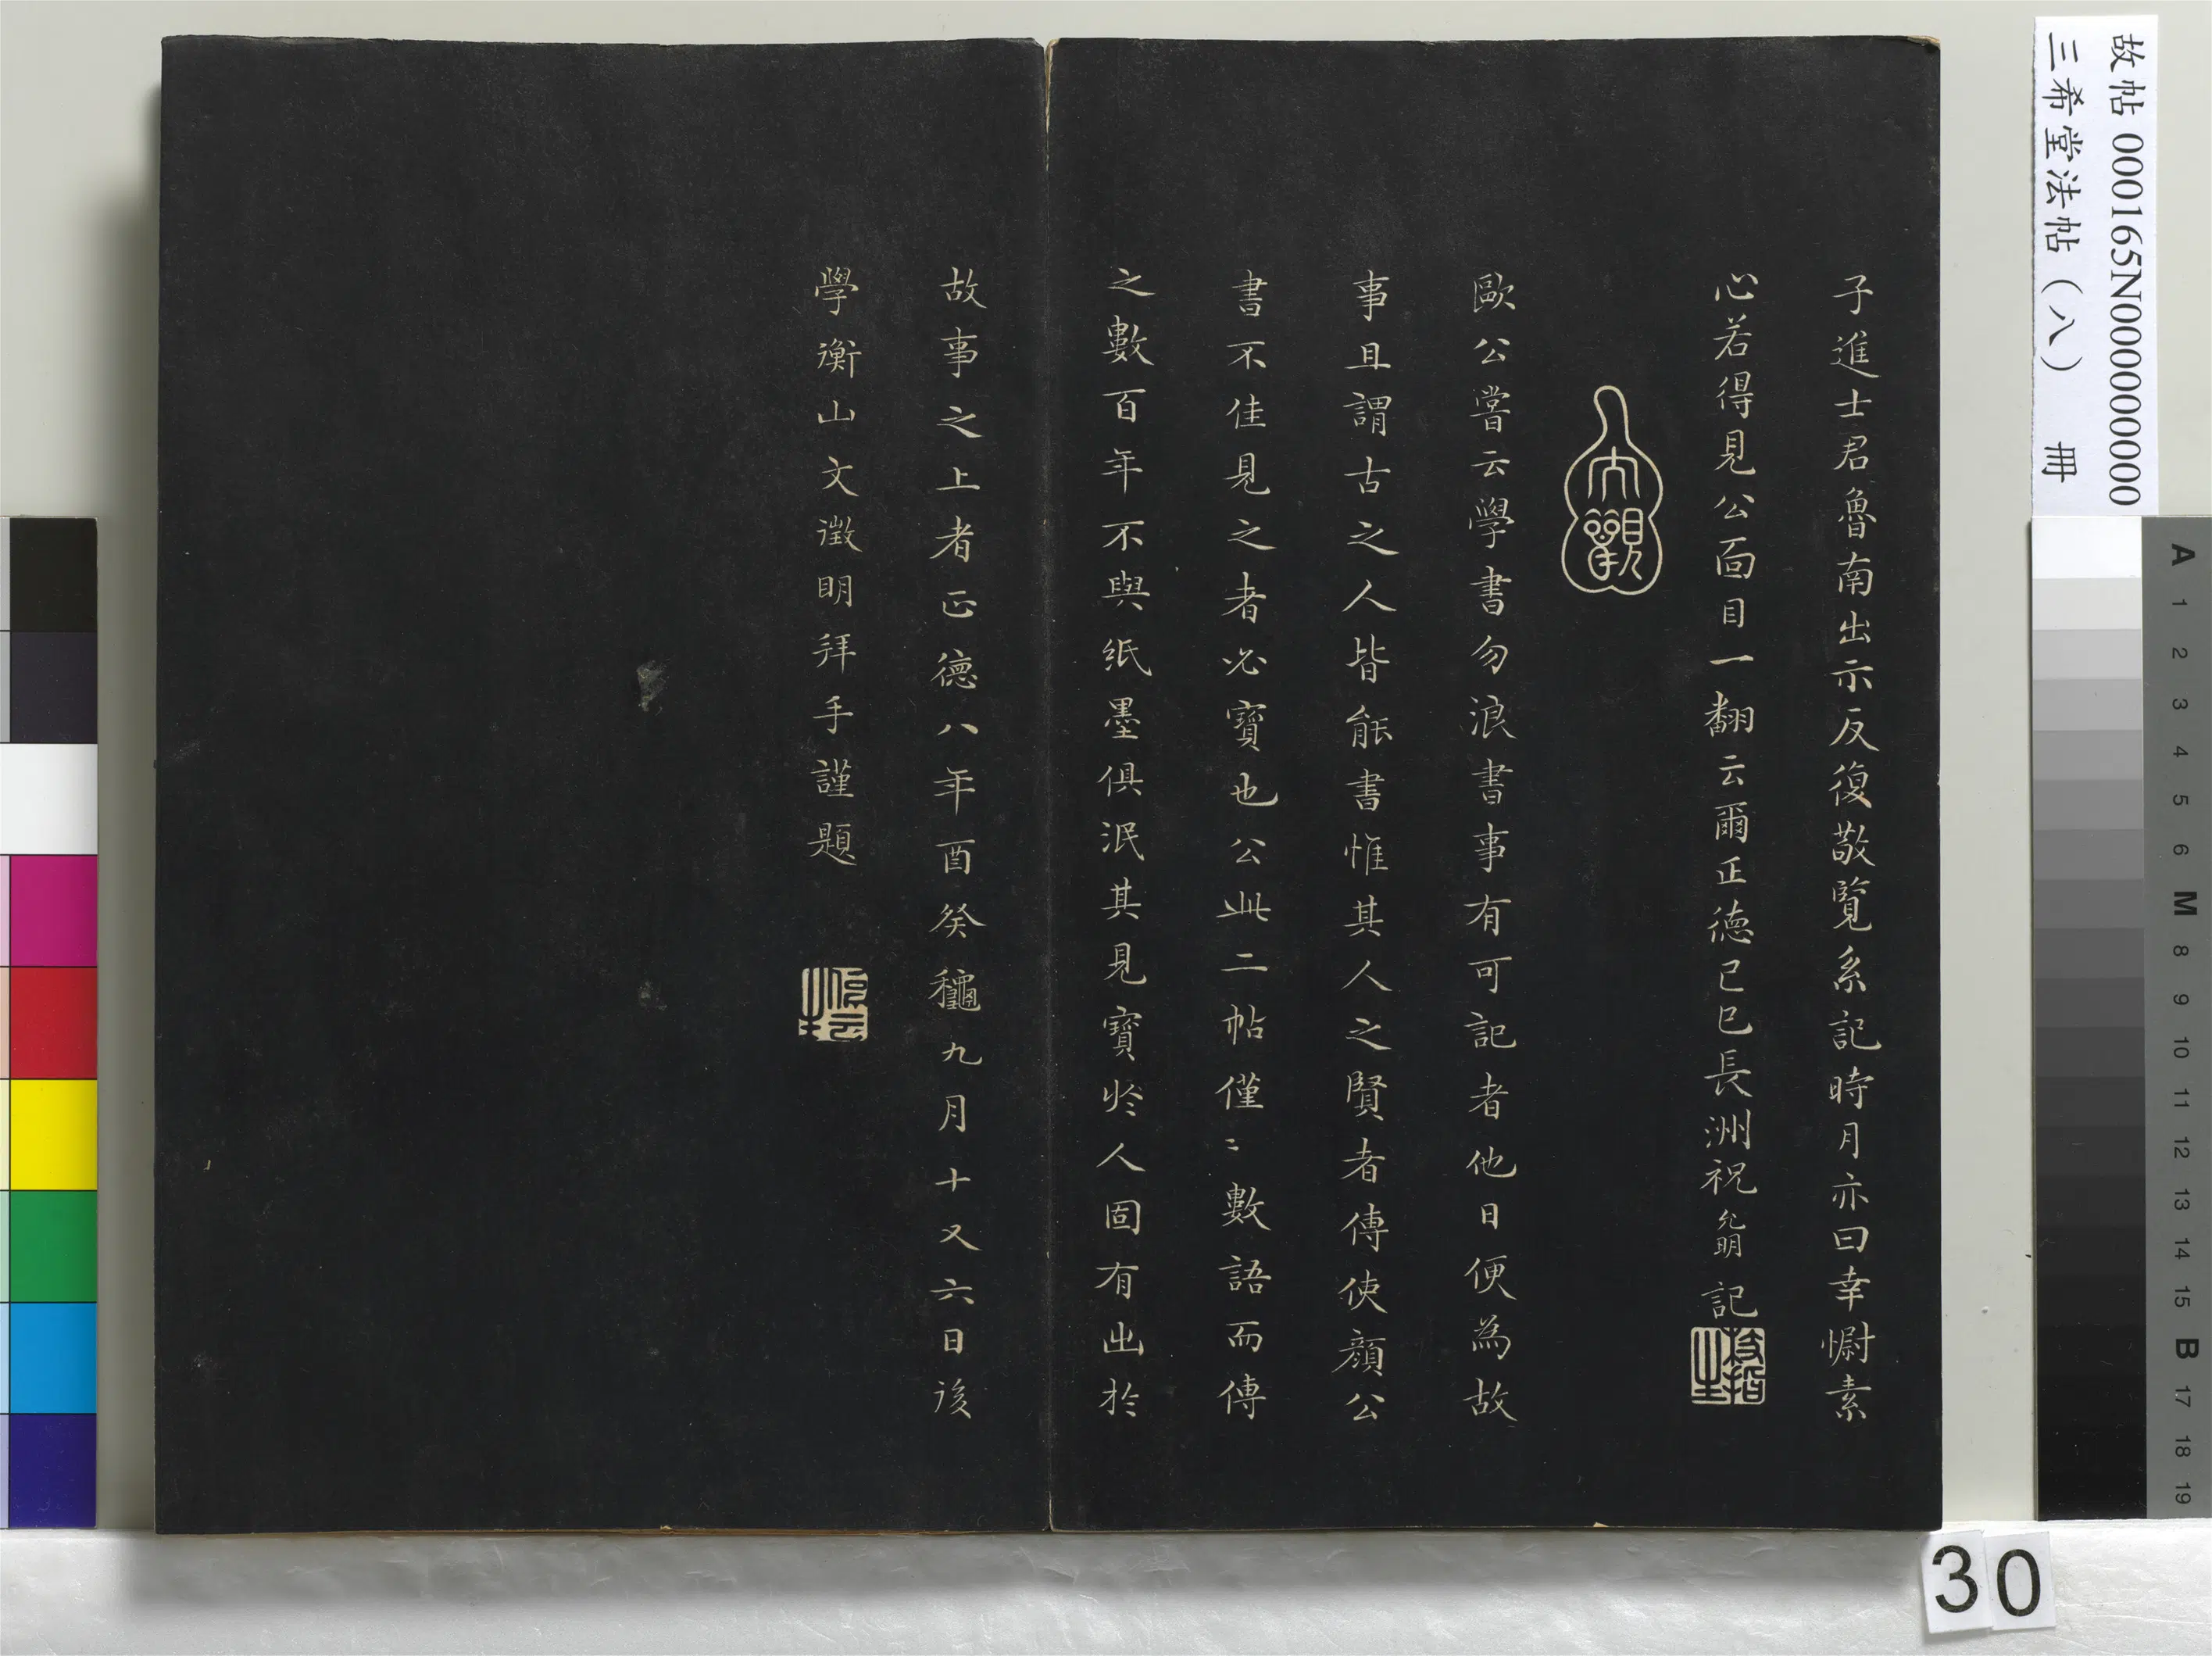 子進士君魯南出示反復敬覽系記時月亦曰幸慰素
心若得見公面目一翻云爾正德己巳長洲祝允明記
枝指生
大觀
歐公嘗云學書勿浪書事有可記者他日便為故
事且謂古之人皆能書惟其人之賢者傳使顏公
書不佳見之者必寶也公此二帖僅〻數語而傳
之數百年不與紙墨俱泯其見寶於人固有出於
故事之上者正德八年酉癸龝九月十又六日後
學衡山文徵明拜手謹題
故帖 000165N000000000
三希堂法帖(八) 冊
A
1
2
3
4
5
6
M
8
9
10
11
12
13
14
15
B
17
18
19
30